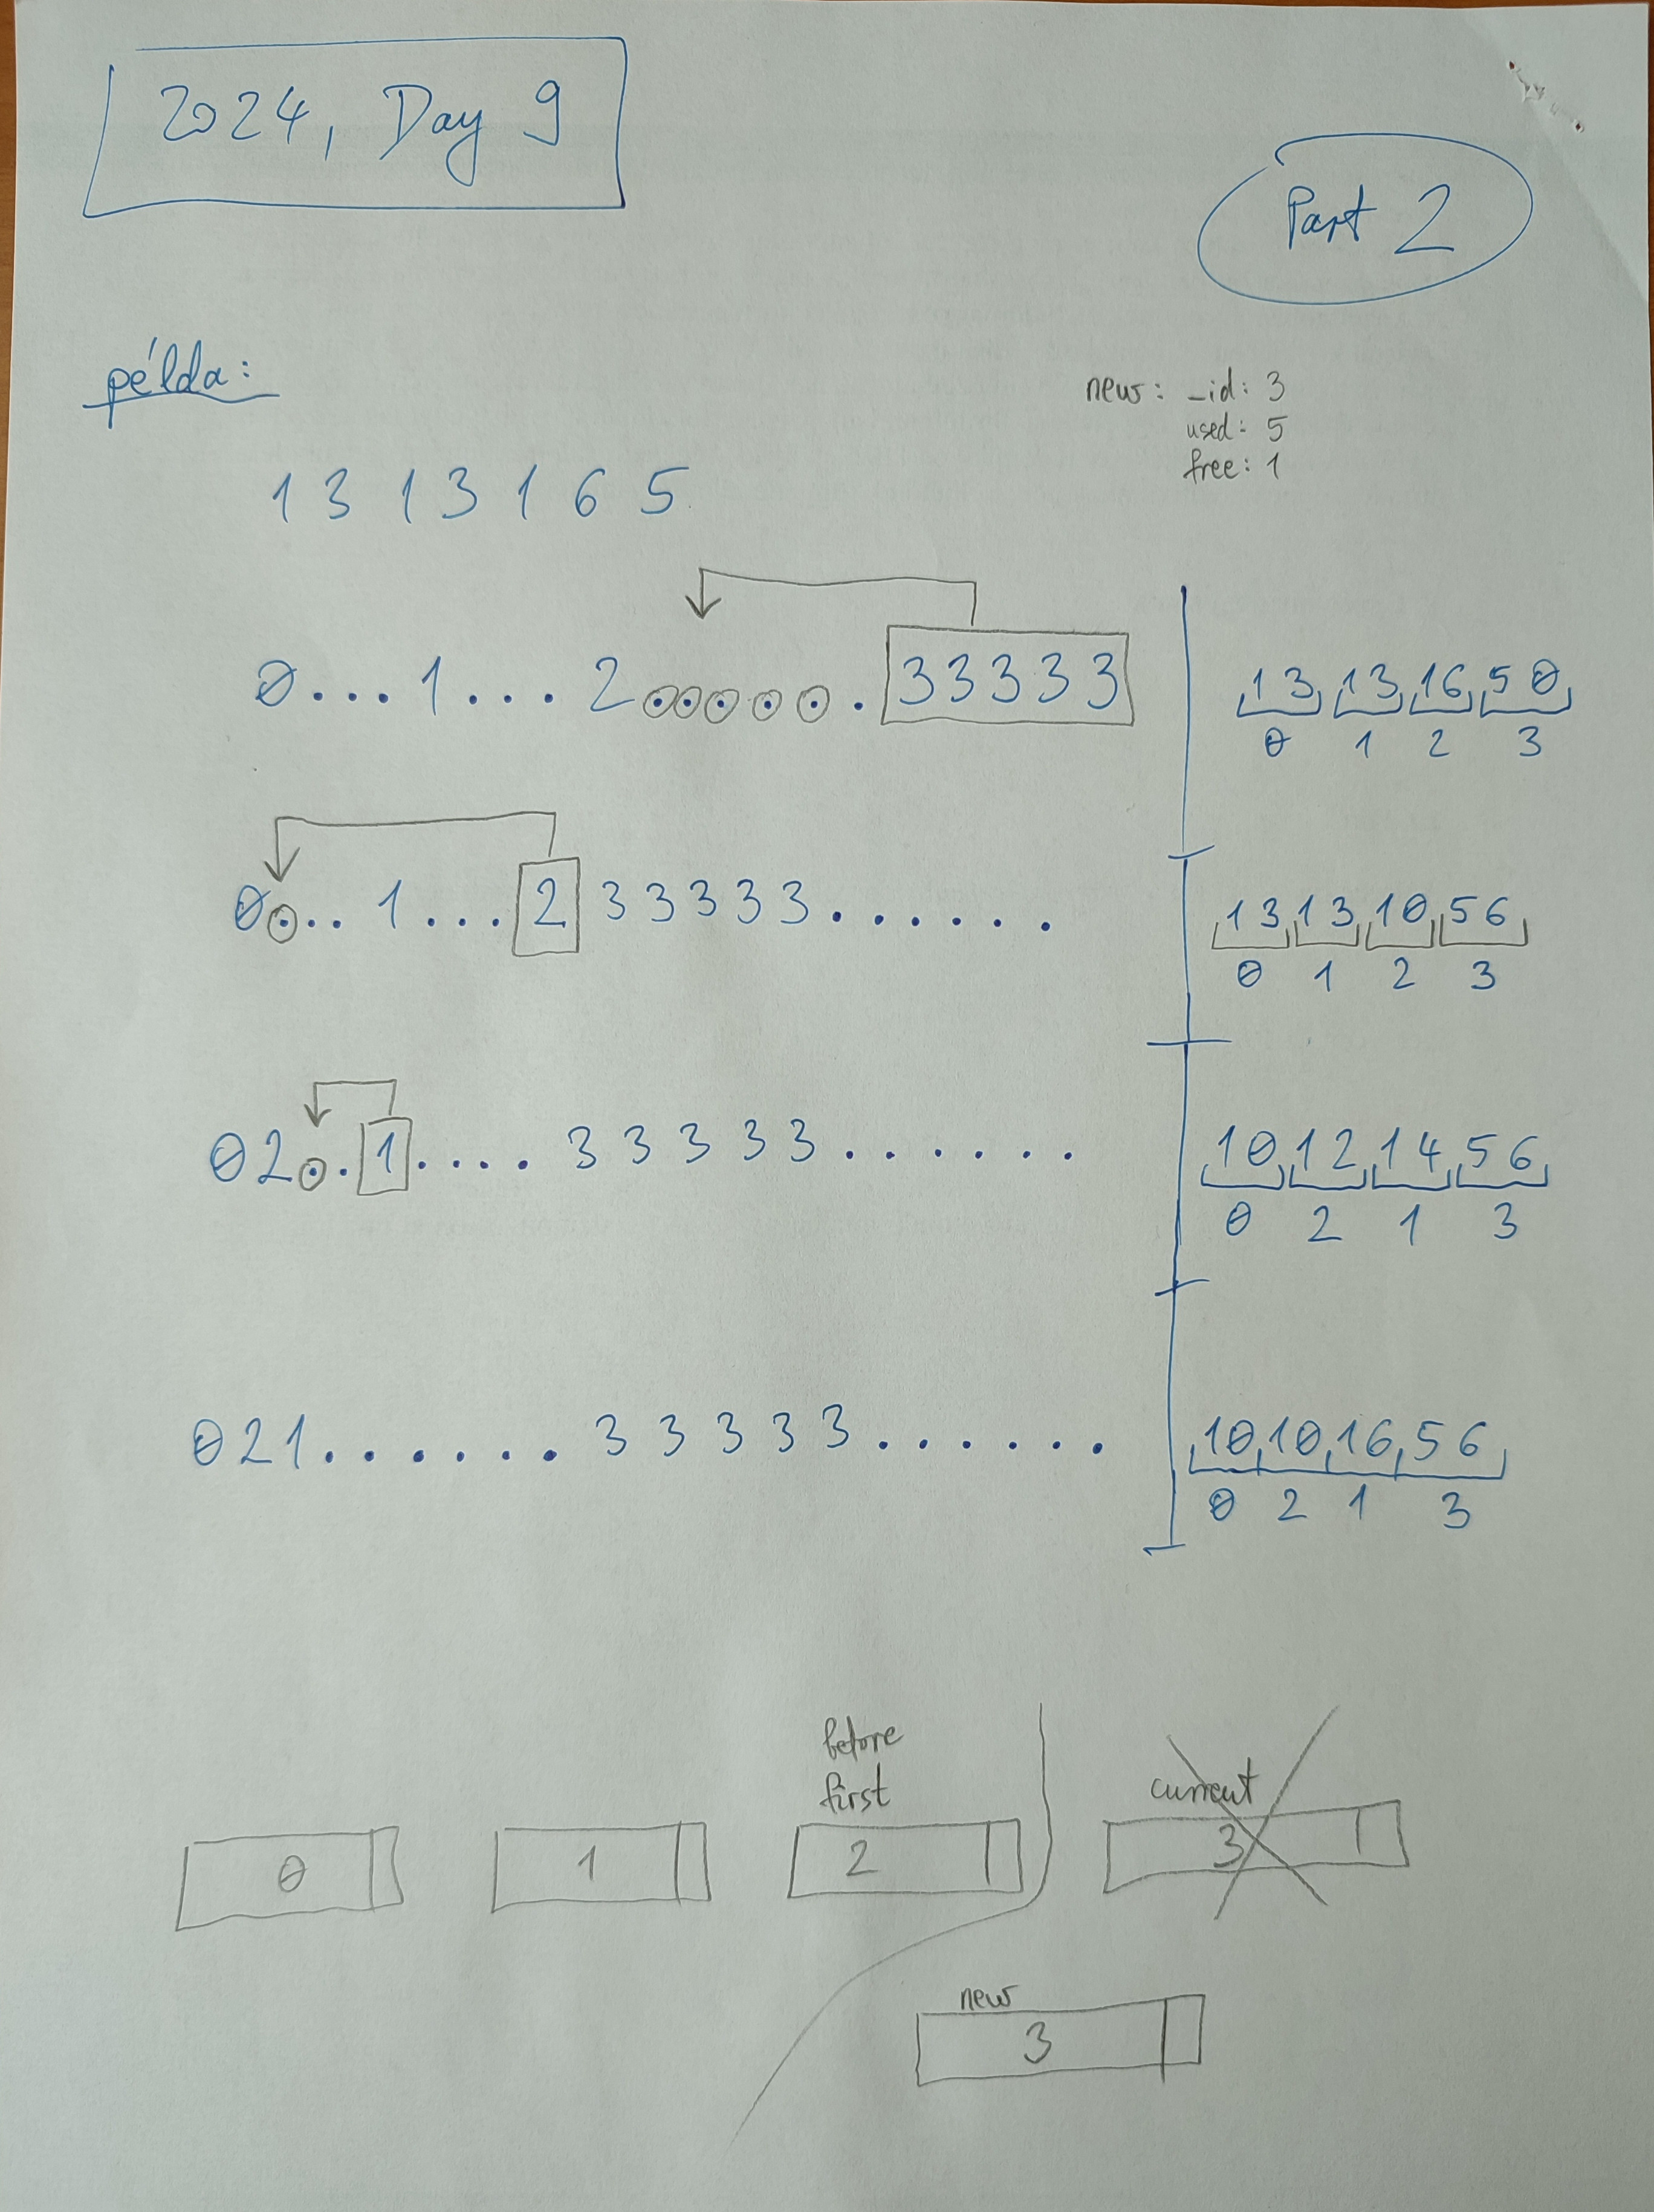 2024, Day 9
Part 2
példa:
new: _id: 3
used: 5
free: 1
1 3 1 3 1 6 5
0...1...2......33333
13 13 16 50
0 1 2 3
0...1...2 33333......
13 13 10 56
0 1 2 3
02..1....33333......
10 12 14 56
0 2 1 3
021......33333......
10 10 16 56
0 2 1 3
before
first
current
0 1 2 3
new
3